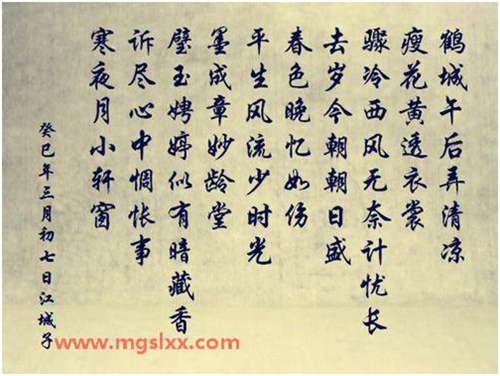 鹤城午后弄清凉
瘦花黄透衣裳
骤冷西风无奈计忧长
去岁今朝朝日盛
春色晚忆如伤
平生风流少时光
墨成章妙龄堂
璧玉娉婷似有暗藏香
诉尽心中惆怅事
寒夜月小轩窗
癸巳年三月初七日江城子
www.mgslxx.com